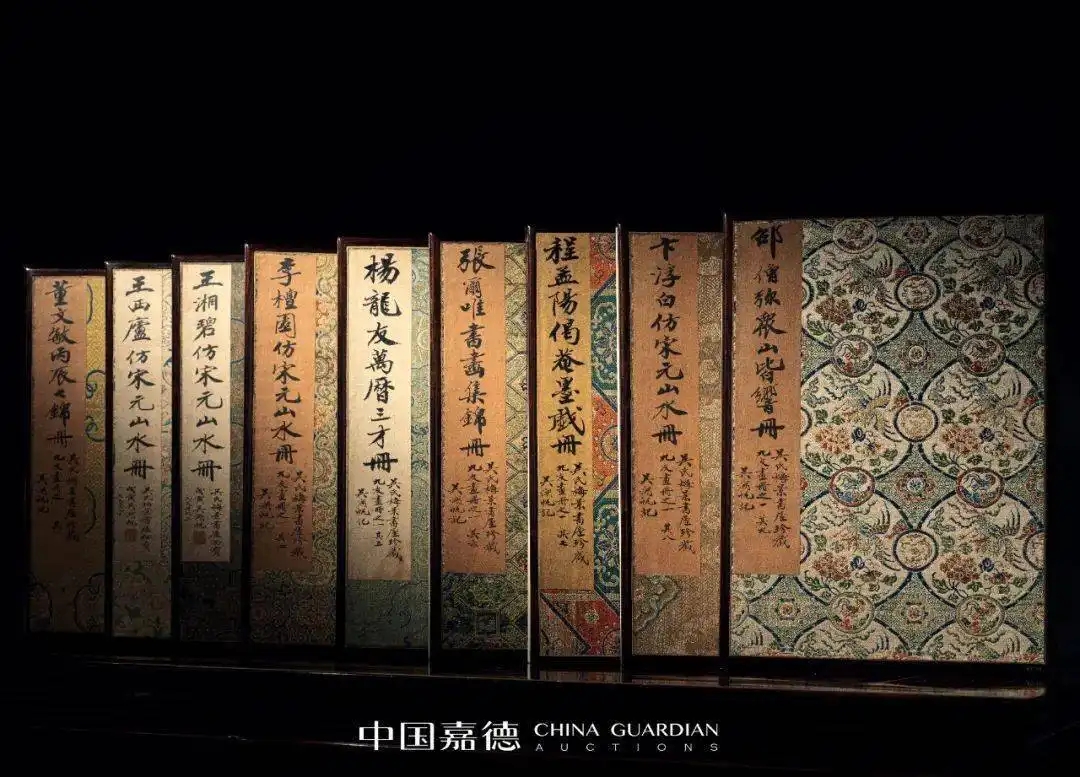 董文敏丙辰錦冊
吳氏梅景書屋珍藏
九友畫冊之一
吳湖帆記
王西廬仿宋元山水冊
王湘碧仿宋元山水冊
李檀園仿宋元山水冊
吳氏梅景書屋珍藏
九友畫冊之一
吳湖帆記
楊龍友萬曆三才冊
吳氏梅景書屋珍藏
九友畫冊之一 其五
吳湖帆記
張爾唯書畫集錦冊
吳氏梅景書屋珍藏
九友畫冊之一 其六
吳湖帆記
程孟陽偈菴墨戲冊
吳氏梅景書屋珍藏
九友畫冊之一 其七
吳湖帆記
卞浮白仿宋元山水冊
吳氏梅景書屋珍藏
九友畫冊之一 其八
吳湖帆記
邵僧彌眾山皆響冊
吳氏梅景書屋珍藏
九友畫冊之一 其九
吳湖帆記
中国嘉德 CHINA GUARDIAN
AUCTIONS